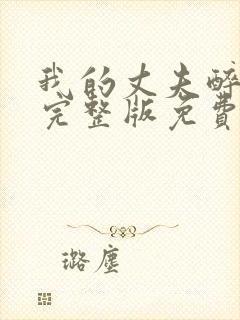 我的丈夫醉
完整版免费
璐尘